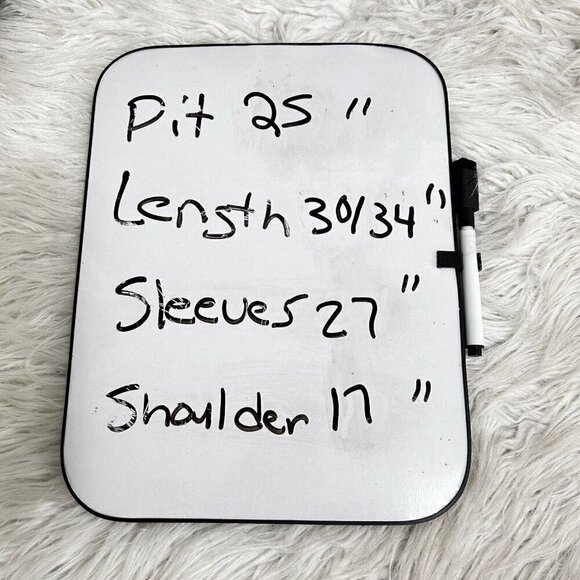 Pit 25 "
Length 30/34"
Sleeves 27 "
Shoulder 17 "